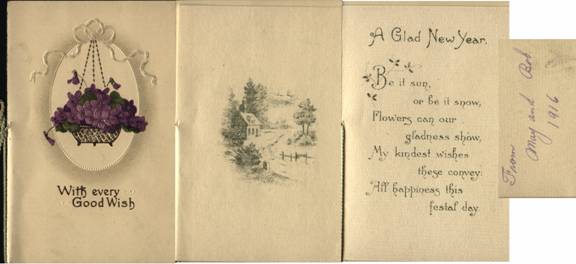 With every
Good Wish
A Glad New Year.
Be it sun,
or be it snow,
Flowers can our
gladness show,
My kindest wishes
these convey:
All happiness this
festal day.
From
May and Bob
1916